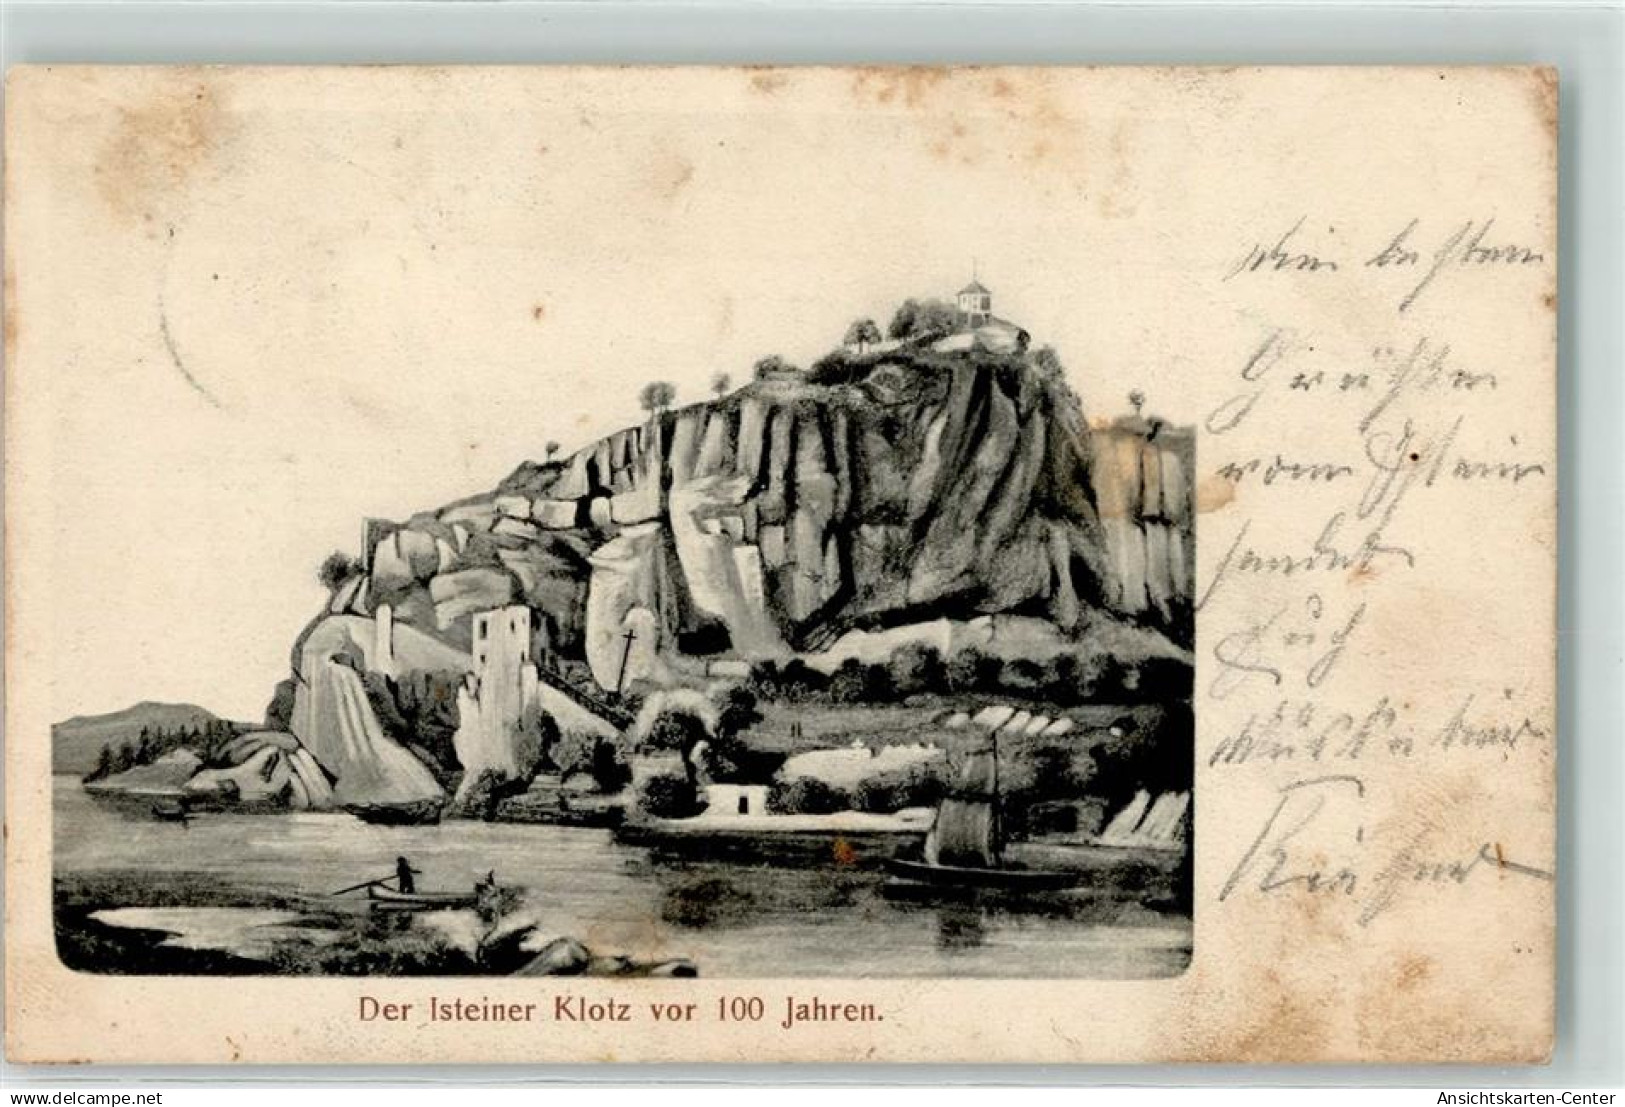 besten
Grüßen
vom Istein
sendet
Euch
Der Isteiner Klotz vor 100 Jahren.
www.delcampe.net
Ansichtskarten-Center